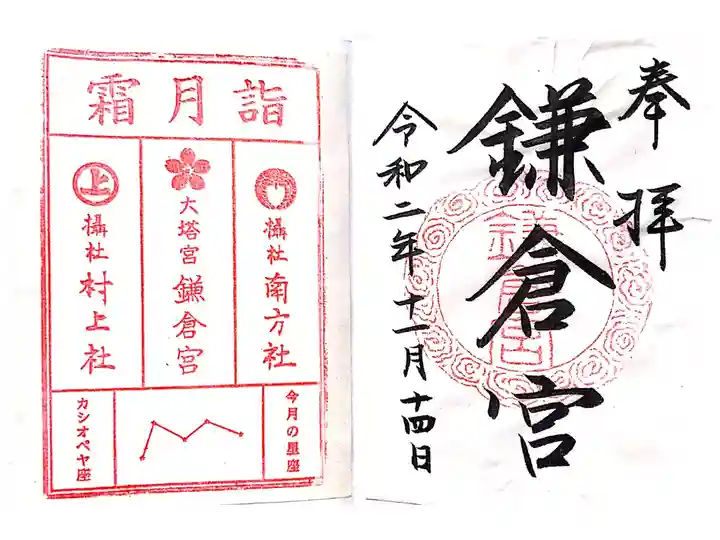 奉拝
鎌倉宮
令和二年十一月十四日
鎌倉宮
霜月詣
摂社 南方社
大塔宮 鎌倉宮
上
攝社 村上社
今月の星座
カシオペヤ座